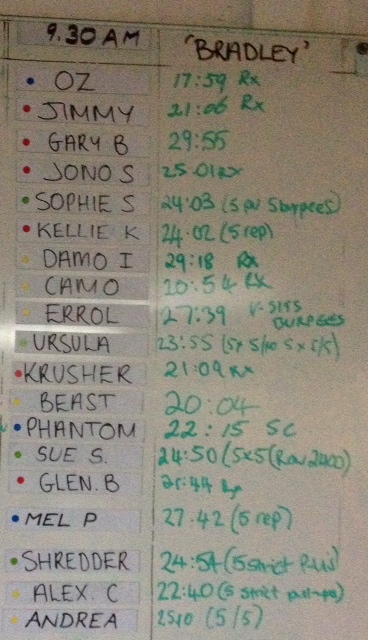 9.30 AM 'BRADLEY'
OZ 17:59 Rx
JIMMY 21:06 Rx
GARY B 29:55
JONO S 25.01 Rx
SOPHIE S 24:03 (5 burpees)
KELLIE K 24:02 (5 rep)
DAMO I 29:18 Rx
CAMO 20:54 Rx
ERROL 27:39 V-SITS BURPEES
URSULA 23:55
KRUSHER 21:09 Rx
BEAST 20:04
PHANTOM 22:15 SC
SUE S. 24:50 (5x5 (Row 2400)
GLEN.B 21:44
MEL P 27.42 (5 rep)
SHREDDER 24:54 (5 Strict
ALEX. C 22:40 (5 strict
ANDREA 25:10 (5/5)